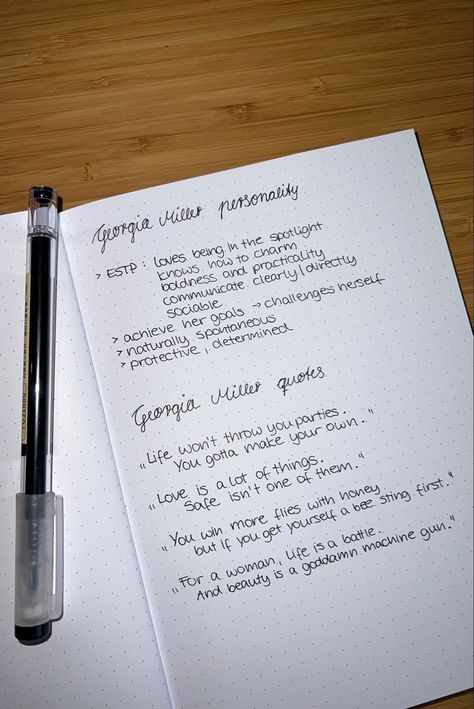 Georgia Miller personality
> ESTP : loves being in the spotlight
knows how to charm
boldness and practicality
communicate clearly/directly
sociable
> achieve her goals → challenges herself
> naturally spontaneous
> protective, determined
Georgia Miller quotes
„Life won't throw you parties.
You gotta make your own."
„Love is a lot of things.
Safe isn't one of them."
„You win more flies with honey
but if you get yourself a bee sting first."
„For a woman, life is a battle.
And beauty is a goddamn machine gun."